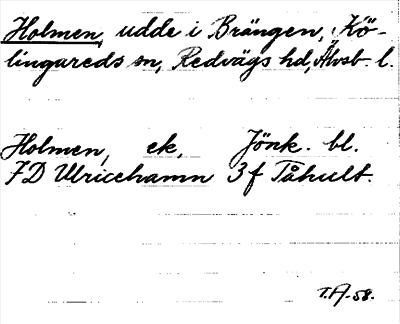 Holmen, udde i Brängen, Kö-
lingareds sn, Redvägs hd, Älvsb. l.
Holmen, ek, Jönk. bl.
7D Ulricehamn 3 f Tåhult.
T.A.-58.